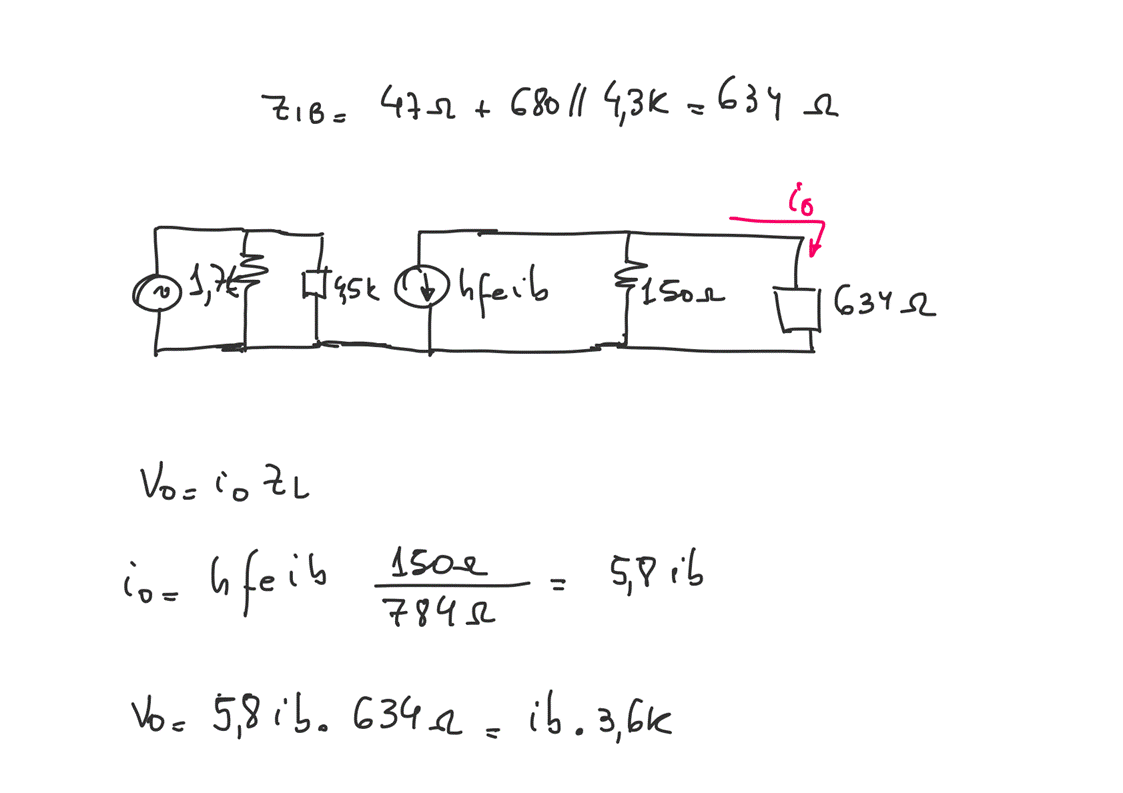 Z1B= 47Ω + 680 // 4,3K = 634 Ω
io
1,7k 4,5k hfeib 150Ω 634Ω
Vo = io ZL
io = hfeib 150Ω / 784Ω = 5,8 ib
Vo = 5,8 ib. 634Ω = ib . 3,6K